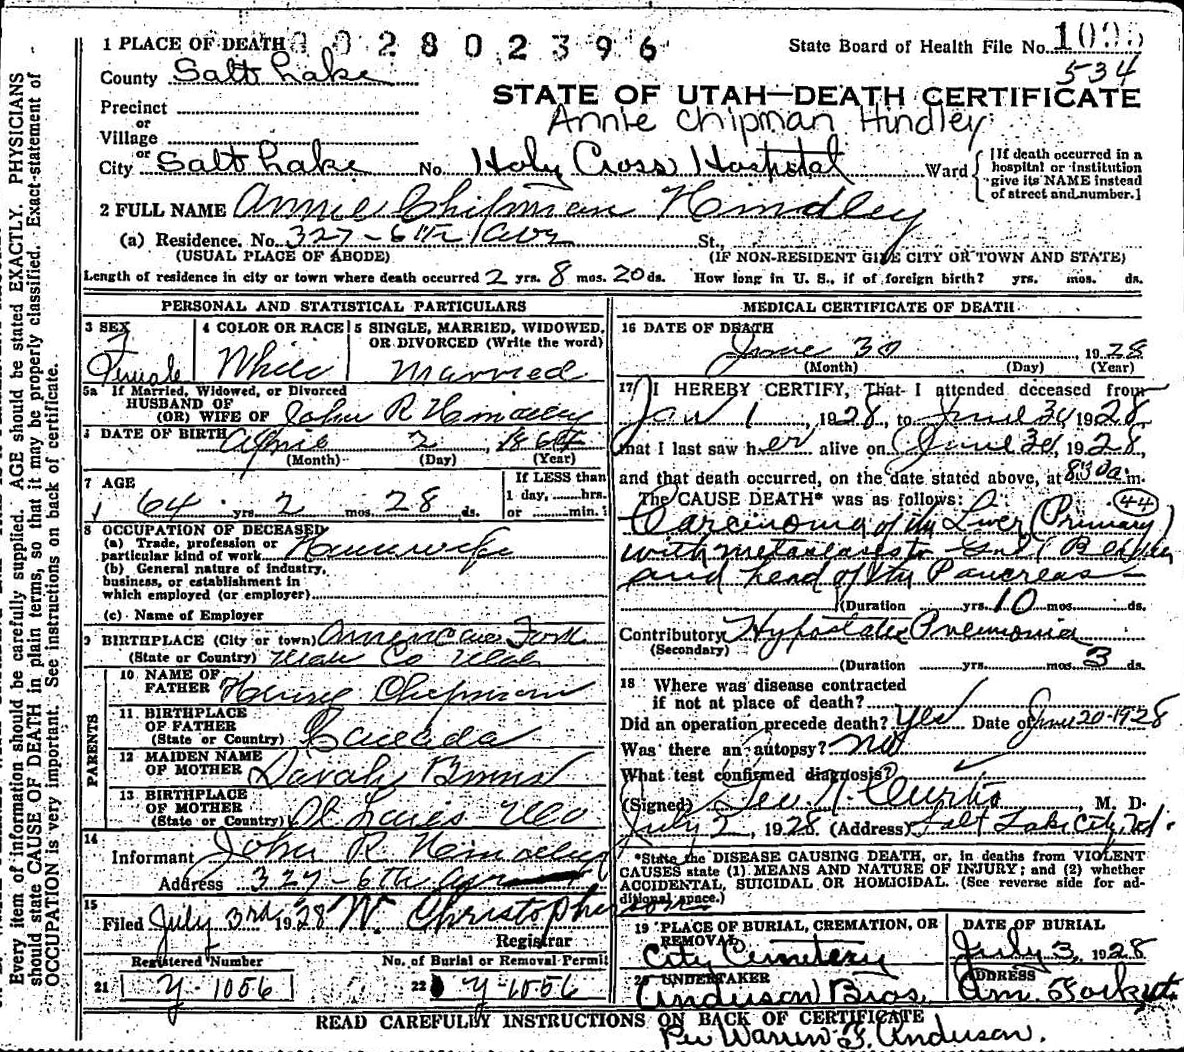 1 PLACE OF DEATH 002802396
State Board of Health File No. 1095
534
County Salt Lake
STATE OF UTAH—DEATH CERTIFICATE
Precinct
Annie Chipman Hindley
or
Village
or
City Salt Lake No. Holy Cross Hospital Ward
[If death occurred in a
hospital or institution
give its NAME instead
of street and number.]
2 FULL NAME Annie Chipman Hindley
(a) Residence. No. 327-6th Ave St.,
(USUAL PLACE OF ABODE) (IF NON-RESIDENT GIVE CITY OR TOWN AND STATE)
Length of residence in city or town where death occurred 2 yrs. 8 mos. 20 ds. How long in U. S., if of foreign birth? yrs. mos. ds.
PERSONAL AND STATISTICAL PARTICULARS
3 SEX
Female
4 COLOR OR RACE
White
5 SINGLE, MARRIED, WIDOWED,
OR DIVORCED (Write the word)
Married
5a If Married, Widowed, or Divorced
HUSBAND OF
(OR) WIFE OF John R Hindley
DATE OF BIRTH April 2, 1864
(Month) (Day) (Year)
7 AGE
64 yrs. 2 mos. 28 ds.
If LESS than
1 day, hrs.
or min.
8 OCCUPATION OF DECEASED
(a) Trade, profession or
particular kind of work Housewife
(b) General nature of industry,
business, or establishment in
which employed (or employer)
(c) Name of Employer
9 BIRTHPLACE (City or town) American Fork
(State or Country) Utah Co Utah
PARENTS
10 NAME OF
FATHER Henry Chipman
11 BIRTHPLACE
OF FATHER
(State or Country) Canada
12 MAIDEN NAME
OF MOTHER Sarah Binns
13 BIRTHPLACE
OF MOTHER
(State or Country) St Louis Mo
14
Informant John R Hindley
Address 327-6th Ave
15
Filed July 3rd 1928 W. Christopherson
Registrar
Registered Number No. of Burial or Removal Permit
21 Y-1056 22 Y-1056
MEDICAL CERTIFICATE OF DEATH
16 DATE OF DEATH
June 30 1928
(Month) (Day) (Year)
17 I HEREBY CERTIFY, That I attended deceased from
Jan 1, 1928, to June 30 1928,
that I last saw her alive on June 30, 1928,
and that death occurred, on the date stated above, at 830 a m.
The CAUSE DEATH* was as follows: 44
Carcinoma of the Liver (Primary)
with metastases to Gall Bladder
and head of the Pancreas
(Duration yrs. 10 mos. ds.
Contributory Hypostatic Pneumonia
(Secondary)
(Duration yrs. mos. 3 ds.
18 Where was disease contracted
if not at place of death?
Did an operation precede death? Yes Date of June 20-1928
Was there an autopsy? no
What test confirmed diagnosis?
(Signed) Geo N. Curtis, M. D.
July 2, 1928. (Address) Salt Lake City,
*State the DISEASE CAUSING DEATH, or, in deaths from VIOLENT
CAUSES state (1) MEANS AND NATURE OF INJURY; and (2) whether
ACCIDENTAL, SUICIDAL OR HOMICIDAL. (See reverse side for ad-
ditional space.)
19 PLACE OF BURIAL, CREMATION, OR
REMOVAL
City Cemetery
DATE OF BURIAL
July 3, 1928
20 UNDERTAKER
Anderson Bros.
ADDRESS
Am. Fork, Ut.
READ CAREFULLY INSTRUCTIONS ON BACK OF CERTIFICATE
Per Warren F. Anderson.
Every item of information should be carefully supplied. AGE should be stated EXACTLY. PHYSICIANS
should state CAUSE OF DEATH in plain terms, so that it may be properly classified. Exact statement of
OCCUPATION is very important. See instructions on back of certificate.